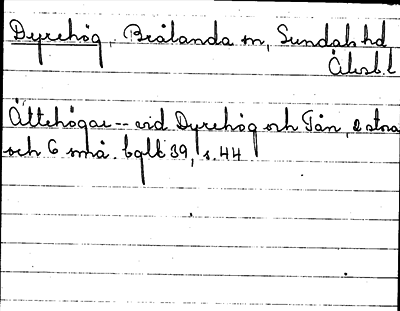 Dyrehög, Brålanda sn, Sundals hd
Älvsb. l
Ättehögar -- vid Dyrehög och Tån, 2 stora
och 6 små. bqlb 39, s. 44